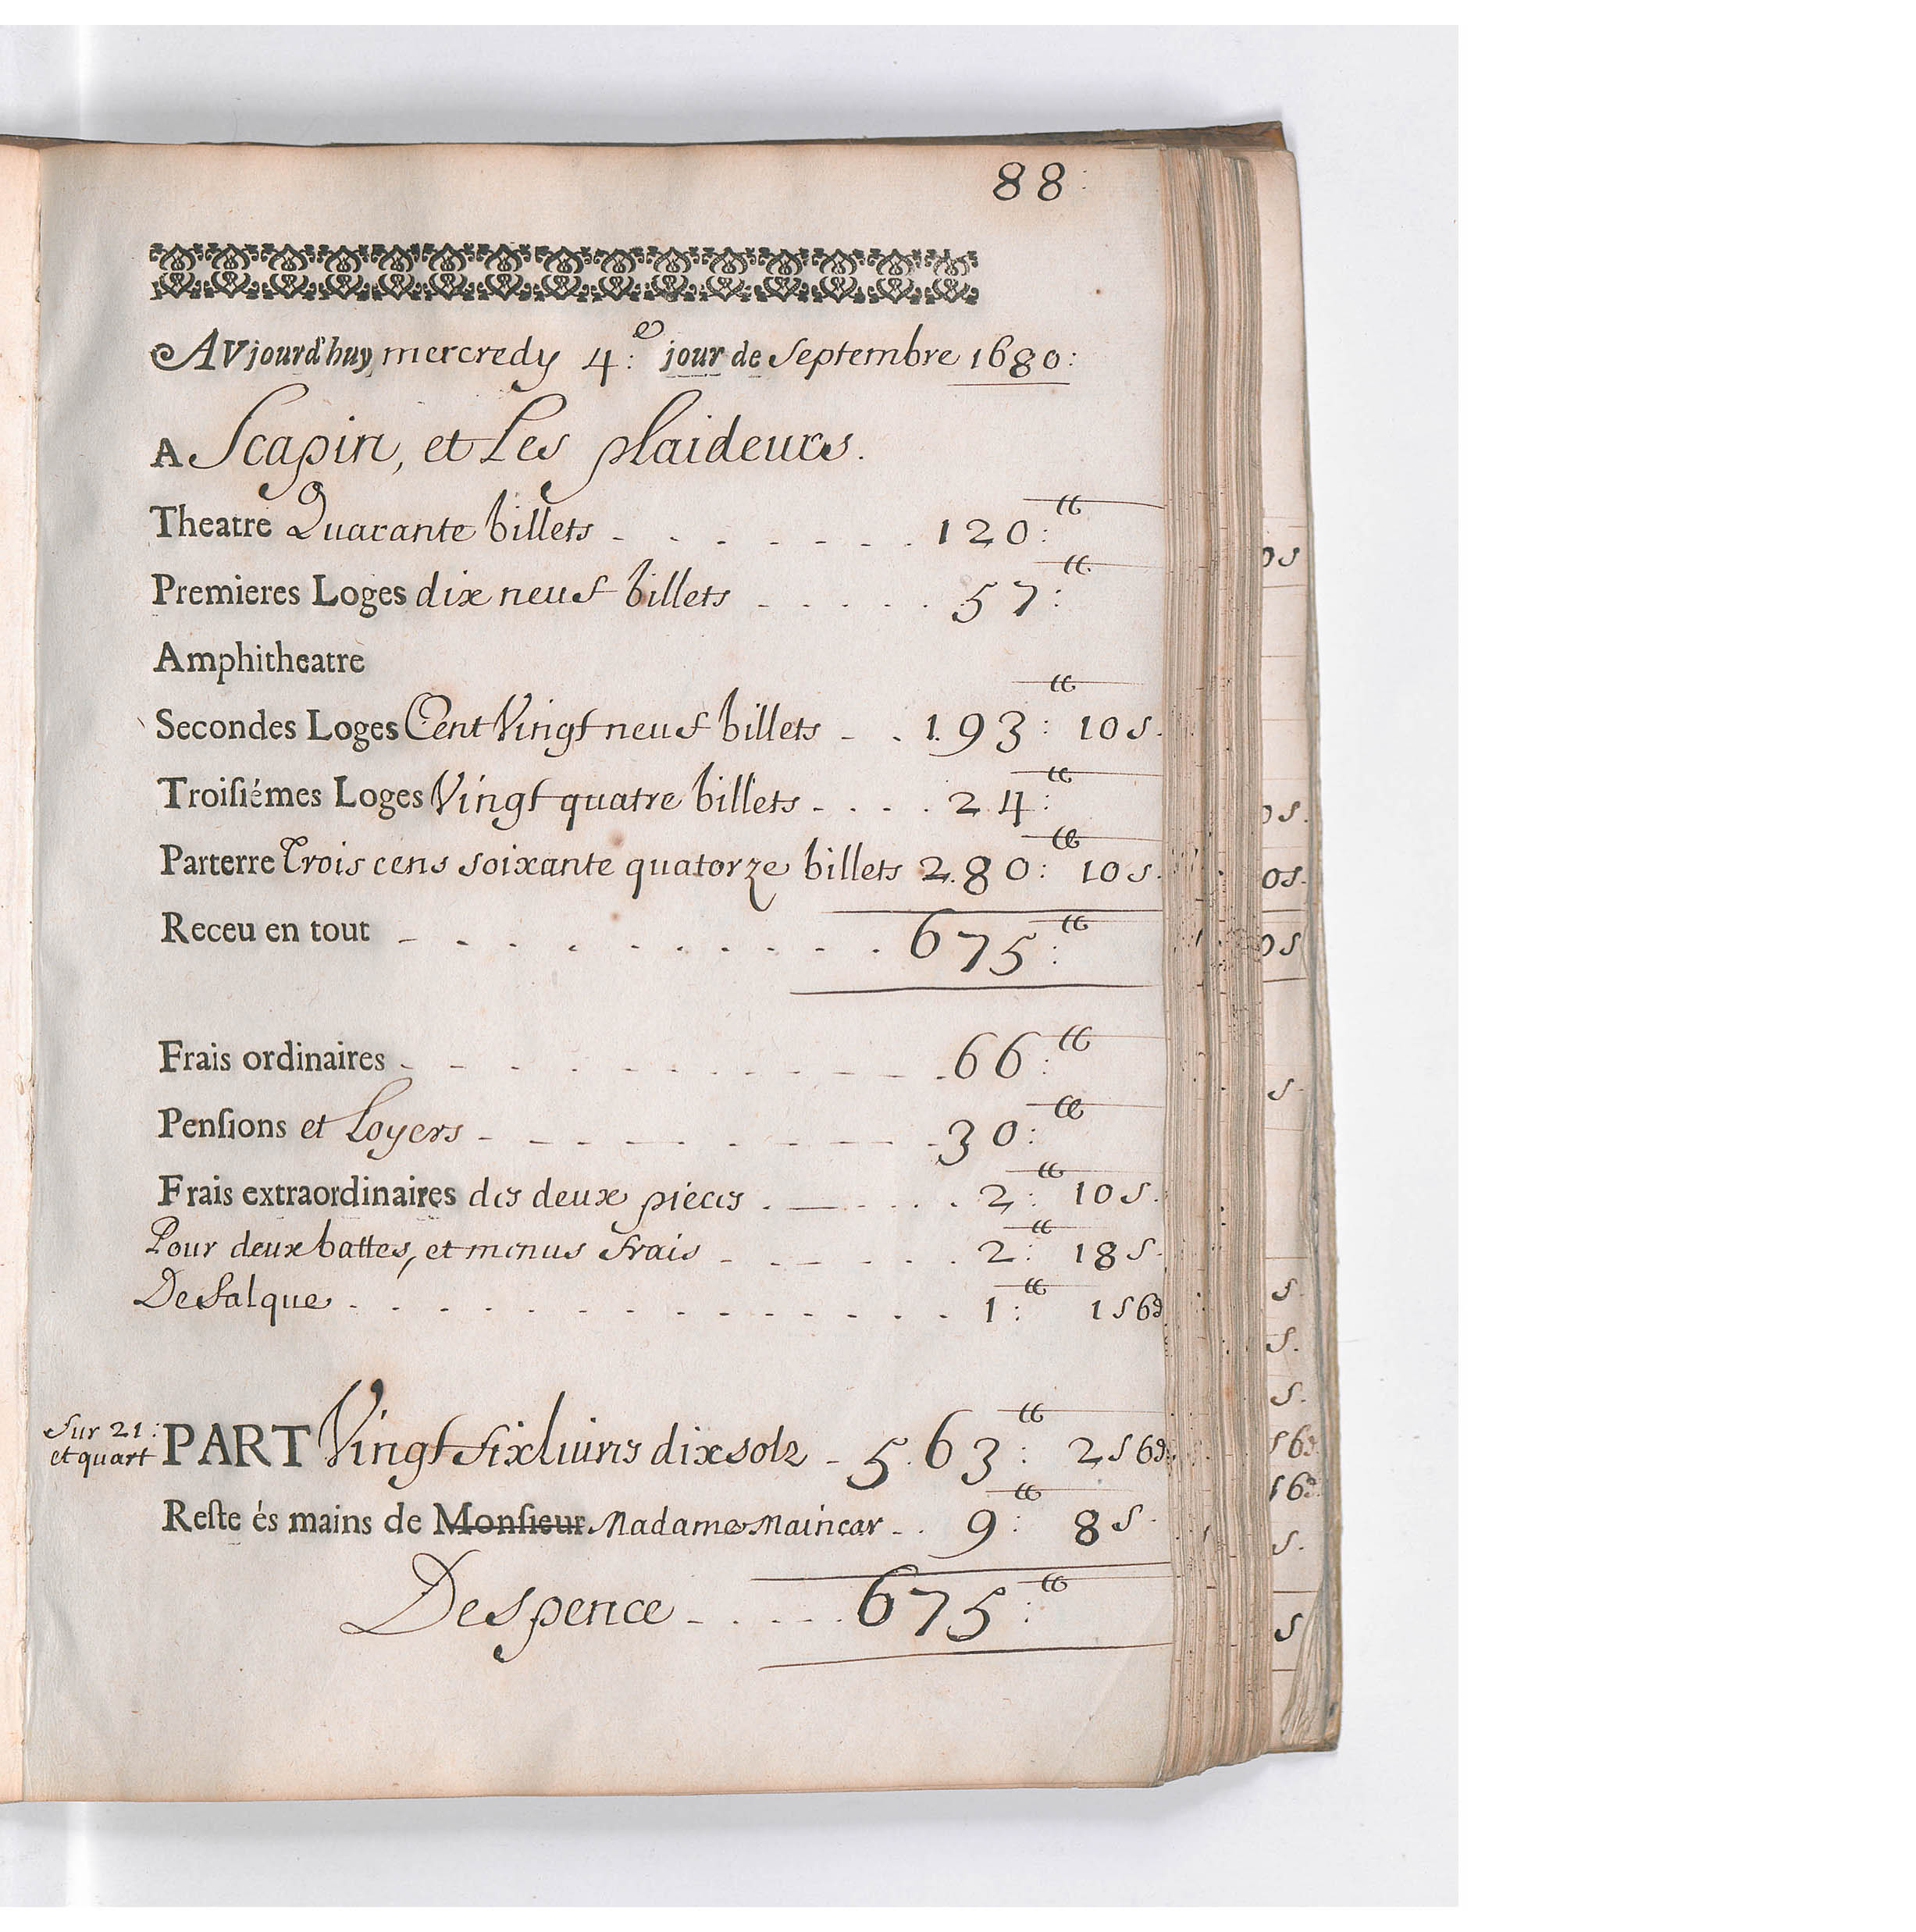 88:
AVjourd'huy mercredy 4:e jour de Septembre 1680:
A Scapin, et Les plaideurs.
Theatre Quarante billets - - - - - - . 120:tt
Premieres Loges dix neuf billets - . . . . 57:tt
Amphitheatre
Secondes Loges Cent Vingt neuf billets - . 193:tt 10 s.
Troisiémes Loges Vingt quatre billets - . . . 24:tt
Parterre Trois cens soixante quatorze billets 280:tt 10 s.
Receu en tout - - . . . . . . . 675:tt
Frais ordinaires - - - - - - - - - 66:tt
Pensions et Loyers - - - - - - - - 30:tt
Frais extraordinaires des deux pieces . - . . . 2:tt 10 s.
Pour deux battes, et menus frais - . - . . . 2:tt 18 s.
Defalque . . . . . . . . . . . . 1:tt 1 s 6 d
Sur 21:
et quart PART Vingt six livres dix solz - 563:tt 2 s 6 d
Reste és mains de Monsieur Madame Maincar - . 9:tt 8 s.
Despence - . . . . 675:tt